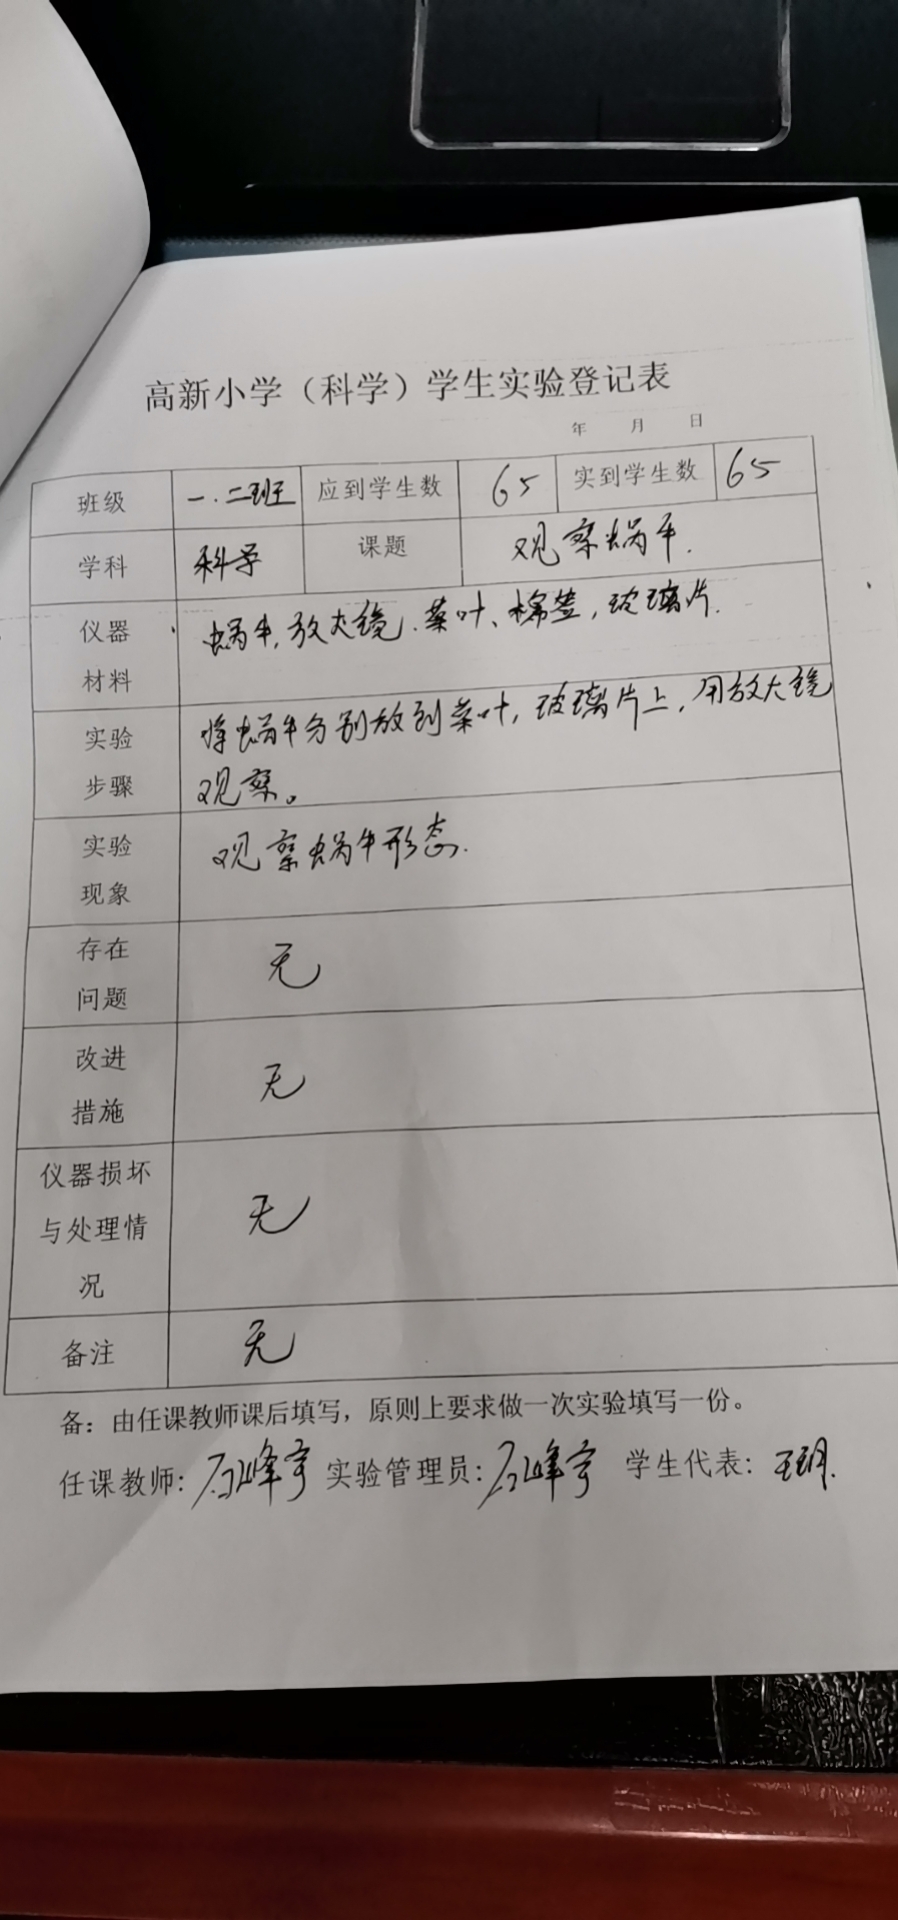 高新小学（科学）学生实验登记表
年 月 日
班级 一.二班 应到学生数 65 实到学生数 65
学科 科学 课题 观察蜗牛.
仪器材料 蜗牛,放大镜.菜叶、棉签,玻璃片.
实验步骤 将蜗牛分别放到菜叶,玻璃片上,用放大镜
观察。
实验现象 观察蜗牛形态.
存在问题 无
改进措施 无
仪器损坏与处理情况 无
备注 无
备：由任课教师课后填写，原则上要求做一次实验填写一份。
任课教师: 峰宇 实验管理员: 峰宇 学生代表: 王玥.